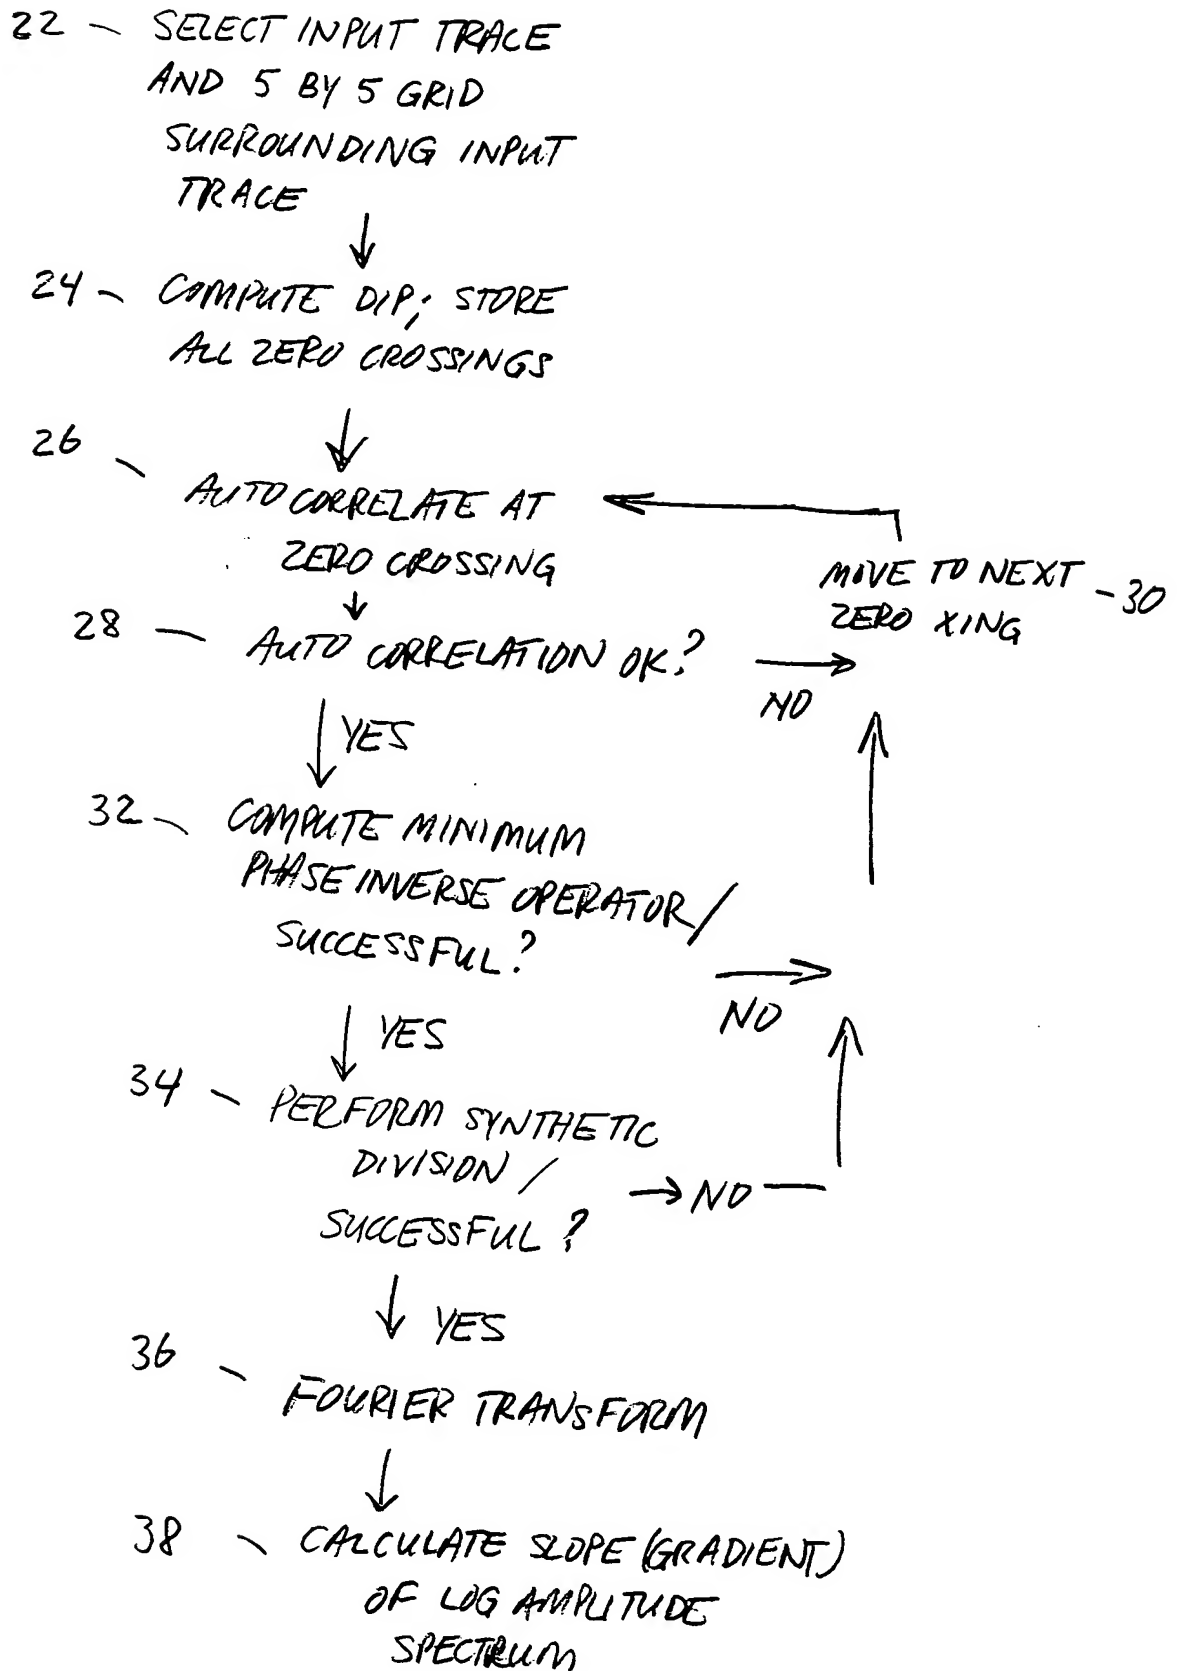 22 - SELECT INPUT TRACE
AND 5 BY 5 GRID
SURROUNDING INPUT
TRACE
24 - COMPUTE DIP; STORE
ALL ZERO CROSSINGS
26 -
AUTO CORRELATE AT
ZERO CROSSING
MOVE TO NEXT - 30
ZERO XING
28 - AUTO CORRELATION OK?
NO
YES
32 - COMPUTE MINIMUM
PHASE INVERSE OPERATOR /
SUCCESSFUL?
NO
YES
34 - PERFORM SYNTHETIC
DIVISION /
NO
SUCCESSFUL?
YES
36 -
FOURIER TRANSFORM
38 - CALCULATE SLOPE (GRADIENT)
OF LOG AMPLITUDE
SPECTRUM